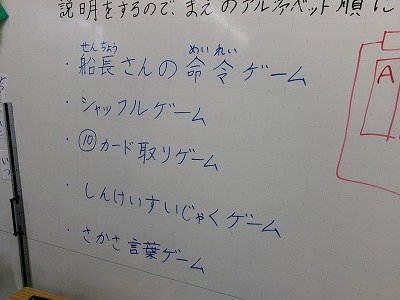 説明をするので、まえのアルファベット順に
せんちょう めいれい
・船長さんの命令ゲーム
・シャッフルゲーム
・⑩カード取りゲーム
・しんけいすいじゃくゲーム
・さかさ言葉ゲーム
A